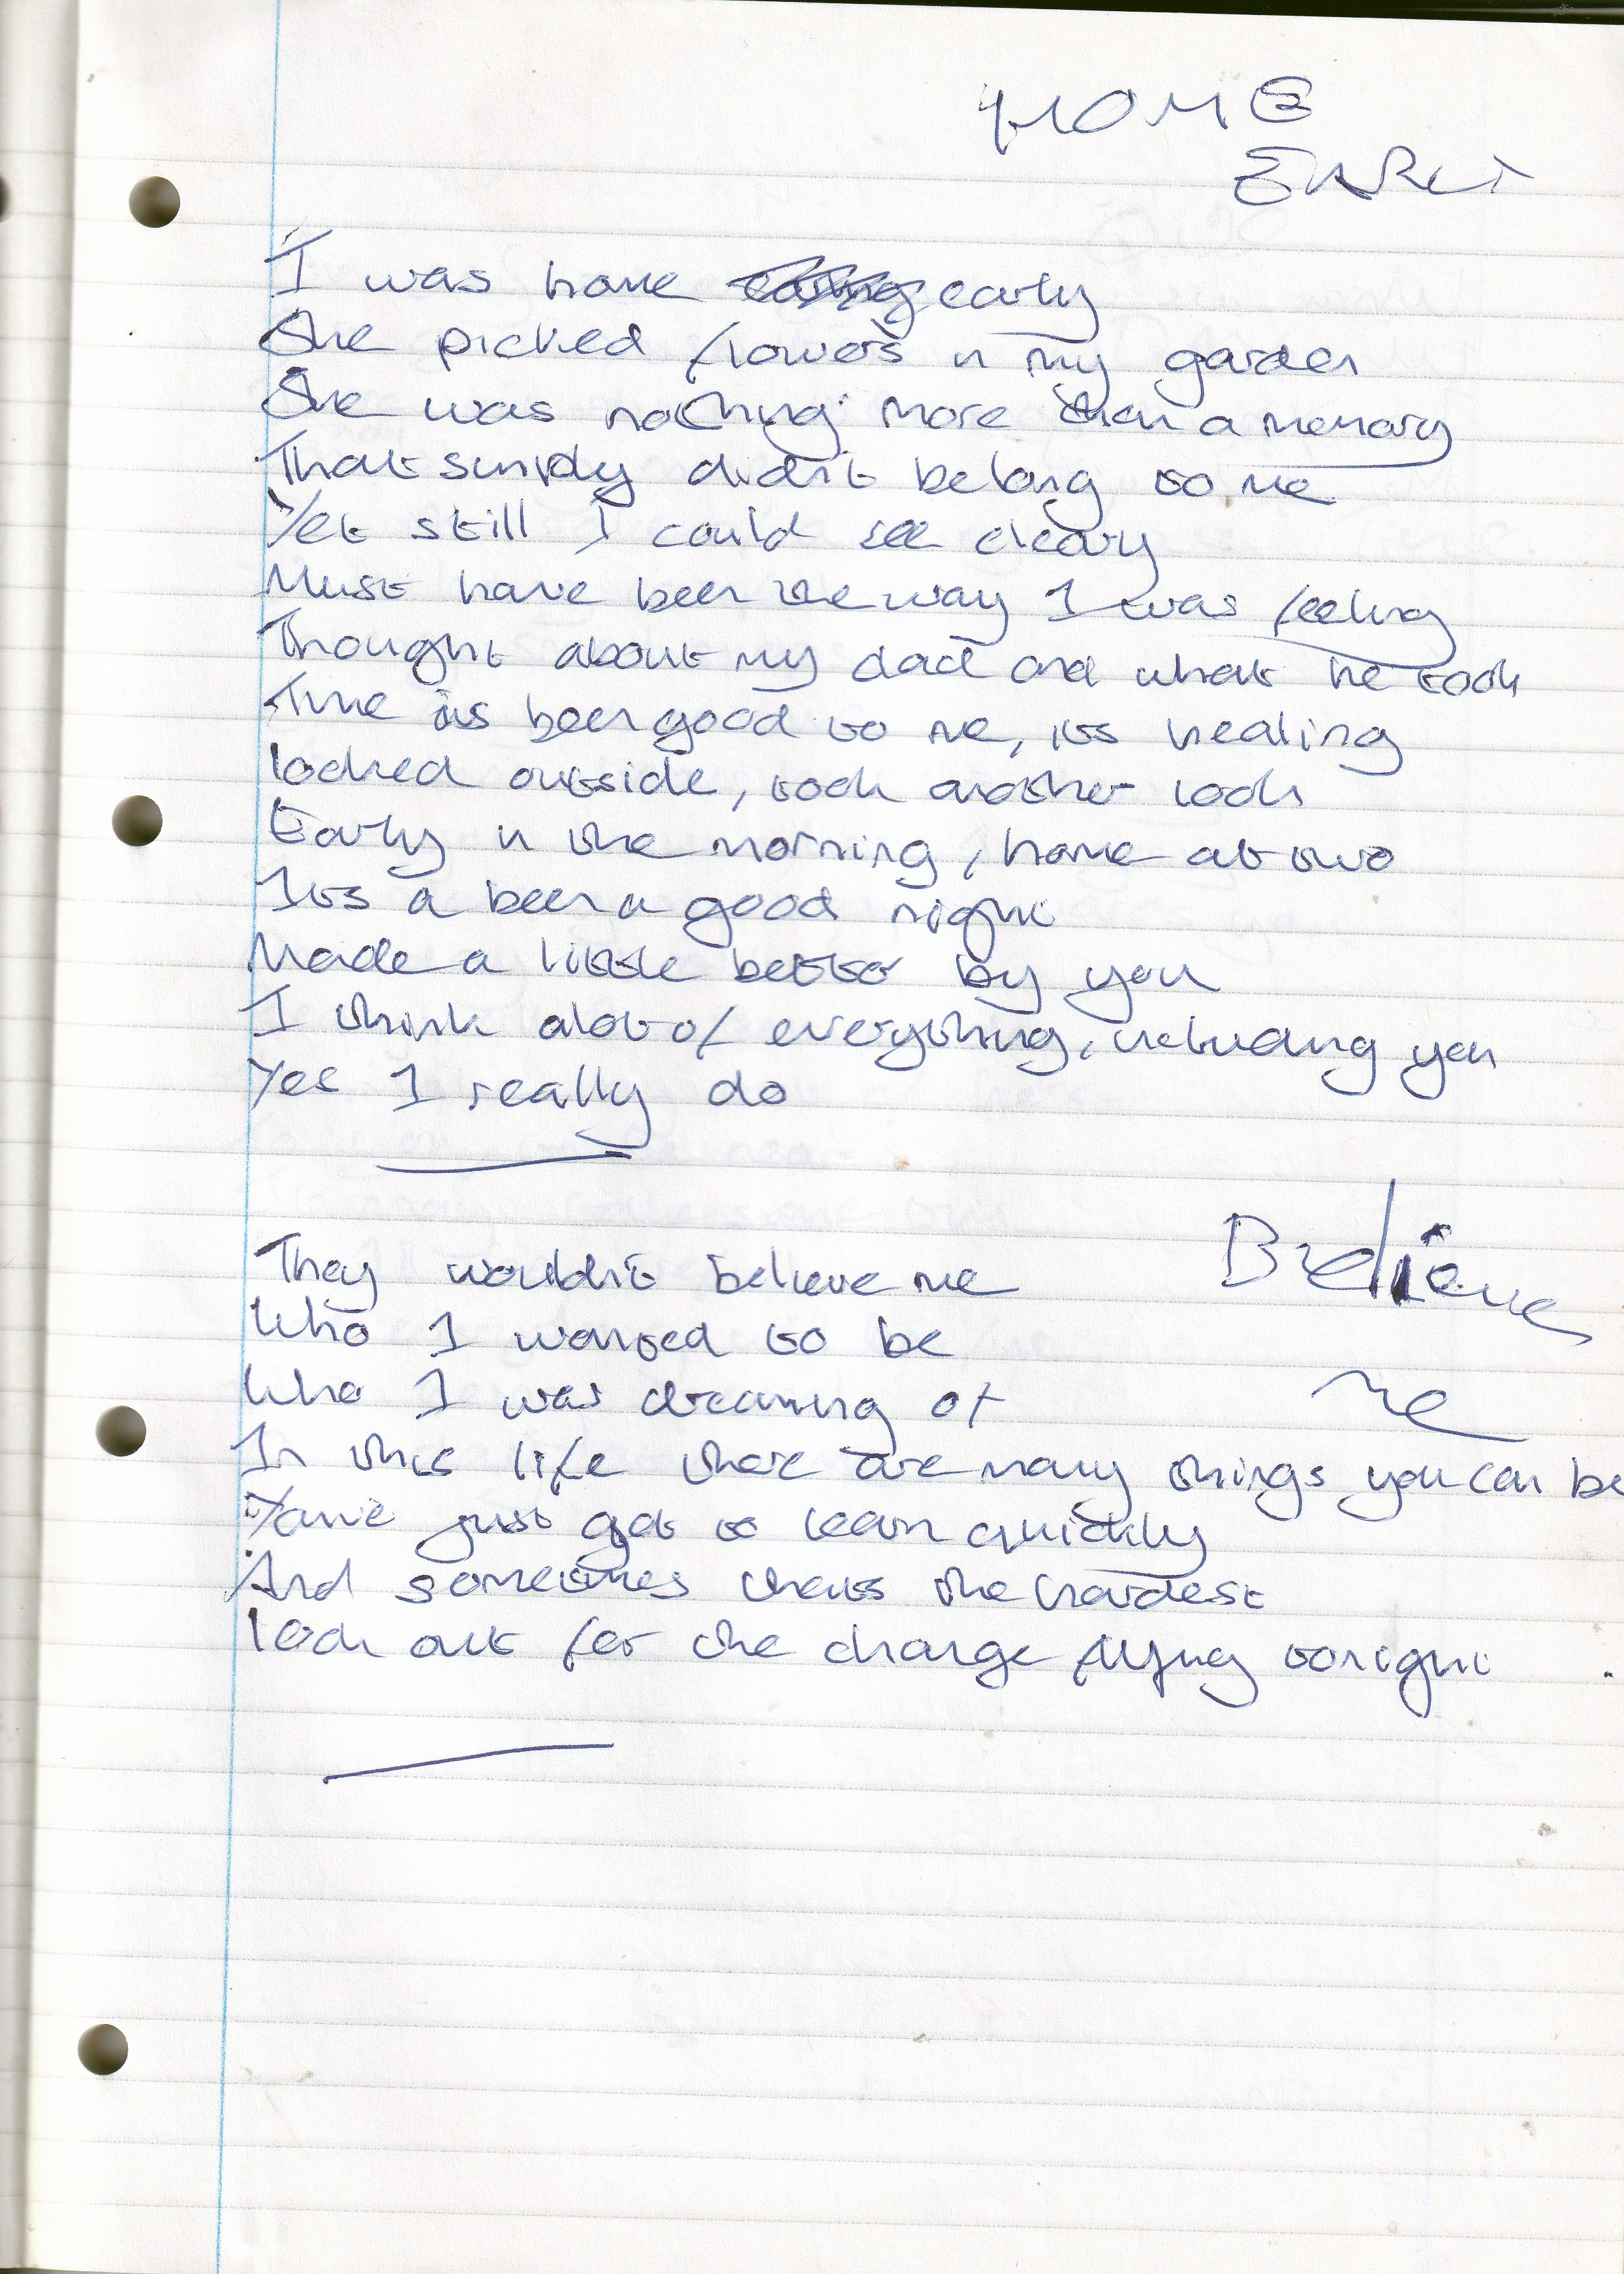 HOME
EARLY
I was home early
She picked flowers in my garden
She was nothing more than a memory
That simply didn't belong to me
Yet still I could see cleary
Must have been the way I was feeling
Thought about my dad and what he took
Time is been good to me, its healing
looked outside, took another look
Early in the morning, home at two
Its a been a good night
Made a little better by you
I think alot of everything, including you
Yes I really do
Believe
me
They wouldn't believe me
Who I wanted to be
Who I was dreaming of
In this life there are many things you can be
You've just got to learn quickly
And sometimes thats the hardest
look out for the change flying tonight